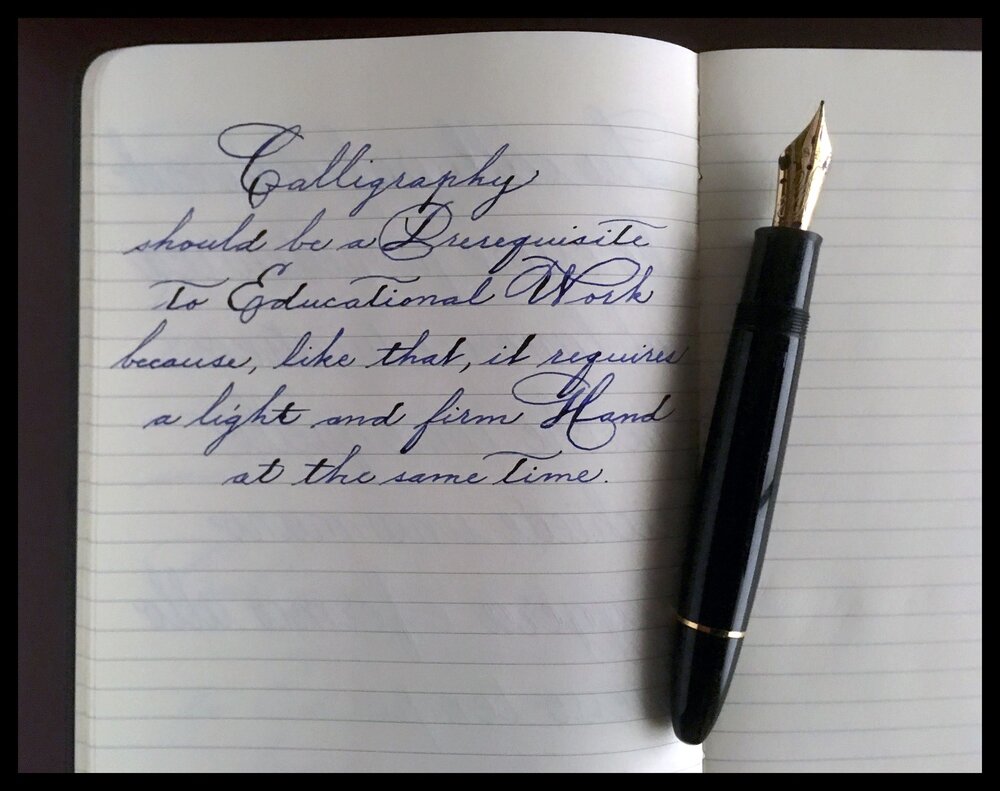 Calligraphy
should be a Prerequisite
to Educational Work
because, like that, it requires
a light and firm Hand
at the same Time.